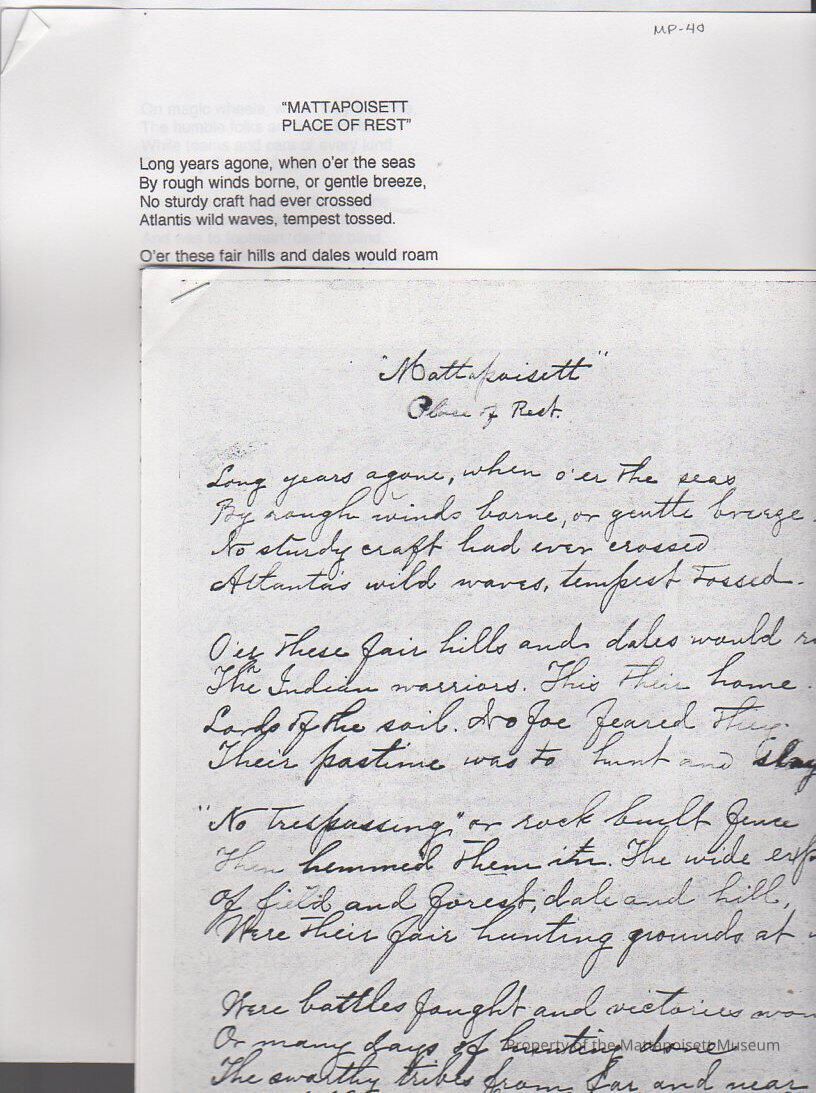 MP-40
"MATTAPOISETT
PLACE OF REST"
Long years agone, when o'er the seas
By rough winds borne, or gentle breeze,
No sturdy craft had ever crossed
Atlantis wild waves, tempest tossed.
O'er these fair hills and dales would roam
"Mattapoisett"
Place of Rest.
Long years agone, when o'er the seas
By rough winds borne, or gentle breeze.
No sturdy craft had ever crossed
Atlanta's wild waves, tempest tossed.
O'er these fair hills and dales would
The Indian warriors. This their home.
Lords of the soil. No foe feared they
Their pastime was to hunt and slay
"No trespassing" or rock built fence
Then hemmed them in. The wide
of field and forest, dale and hill,
Were their fair hunting grounds at
Were battles fought and victories won
Or many days of hunting done
The swarthy tribes from far and near
Property of the Mattapoisett Museum